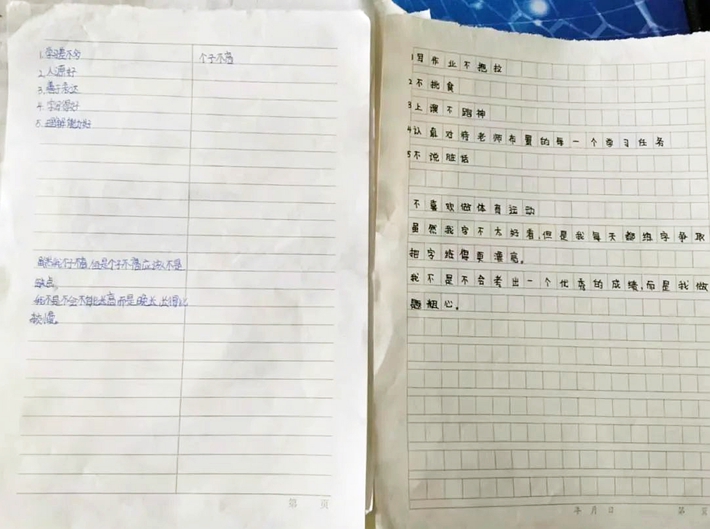 1.学习态不多
个子不高
2.人源好
3.善于表达
4.学习很好
5.理解能力好
虽然我个子不高,但是个子不高应该不是
缺点。
我不是不会不能长高而是晚长 长得比
较慢。
第 页
1写作业不拖拉
2不挑食
3上课不跑神
4认真对待老师布置的每一个学习任务
5不说脏话
不喜欢做体育运动
虽然我字不太好看,但是我每天都练字争取
把字练得更漂亮。
我不是不会考出一个优秀的成绩,而是我做
题粗心。
年 月 日 第 页